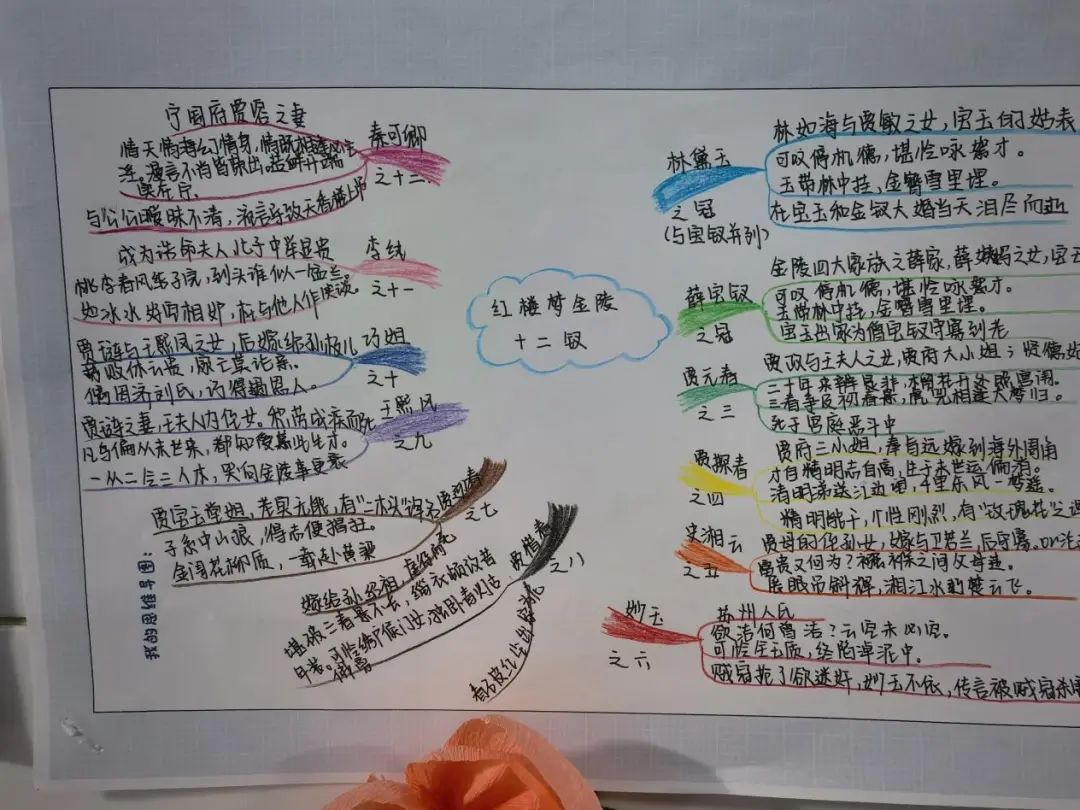 红楼梦金陵
十二钗
林黛玉
之冠
(与宝钗并列)
林如海与贾敏之女,宝玉的姑表
可叹停机德,堪怜咏絮才。
玉带林中挂,金簪雪里埋。
在宝玉和金钗大婚当天泪尽而逝
薛宝钗
之冠
金陵四大家族之薛家,薛姨妈之女,宝玉
可叹停机德,堪怜咏絮才。
玉带林中挂,金簪雪里埋。
宝玉出家为僧宝钗守寡到老
贾元春
之三
贾政与王夫人之女,贾府大小姐,贤儒
二十年来辨是非,榴花开处照宫闱。
三春争及初春景,虎兕相逢大梦归。
死于宫庭恶斗中
贾探春
之四
贾府三小姐,奉旨远嫁到海外
才自精明志自高,生于末世运偏消。
清明涕送江边望,千里东风一梦遥。
精明能干,个性刚烈,有"玫瑰花"之
史湘云
之五
贾母的侄孙女,嫁与卫若兰,后守寡。
富贵又何为?襁褓之间父母违。
展眼吊斜辉,湘江水逝楚云飞。
妙玉
之六
苏州人氏
欲洁何曾洁?云空未必空。
可怜金玉质,终陷淖泥中。
贼寇抢了欲逃奸,妙玉不依,传言被贼寇杀害
秦可卿
之十二
宁国府贾蓉之妻
情天情海幻情身,情既相逢必主
淫。漫言不肖皆荣出,造衅开端
实在宁。
与公公暧昧不清,流言导致天香楼上吊
李纨
之十一
成为诰命夫人儿子中举显贵
桃李春风结子完,到头谁似一盆兰。
如冰水好空相妒,枉与他人作笑谈。
巧姐
之十
贾琏与王熙凤之女,后嫁给
势败休云贵,家亡莫论亲。
偶因济刘氏,巧得遇恩人。
王熙凤
之九
贾琏之妻,王夫人内侄女。积劳成疾而死
凡鸟偏从末世来,都知爱慕此生才。
一从二令三人木,哭向金陵事更哀
贾迎春
之七
贾宝玉堂姐,老实无能,有"二木头"
子系中山狼,得志便猖狂。
金闺花柳质,一载赴黄粱
嫁给孙绍祖,
贾惜春
之八
堪破三春景不长,缁衣顿改昔
年装。可怜绣户侯门女,独卧青灯古
佛旁
看破红尘出家
我的思维导图: